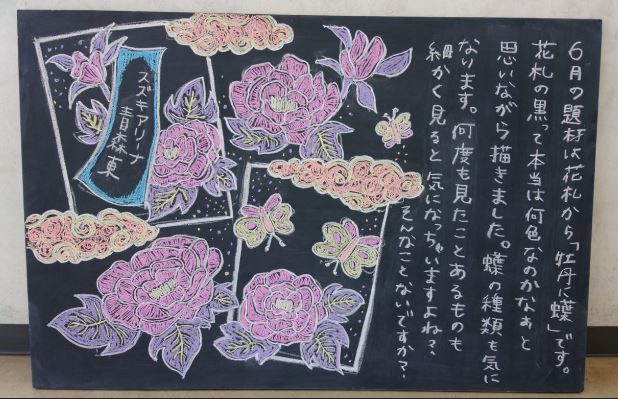 6月の題材は花札から「牡丹に蝶」です。
花札の黒って本当は何色なのかなぁと
思いながら描きました。蝶の種類も気に
なります。何度も見たことあるものも
細かく見ると気になっちゃいますよね?
そんなことないですか?
スズキアリーナ
青森東